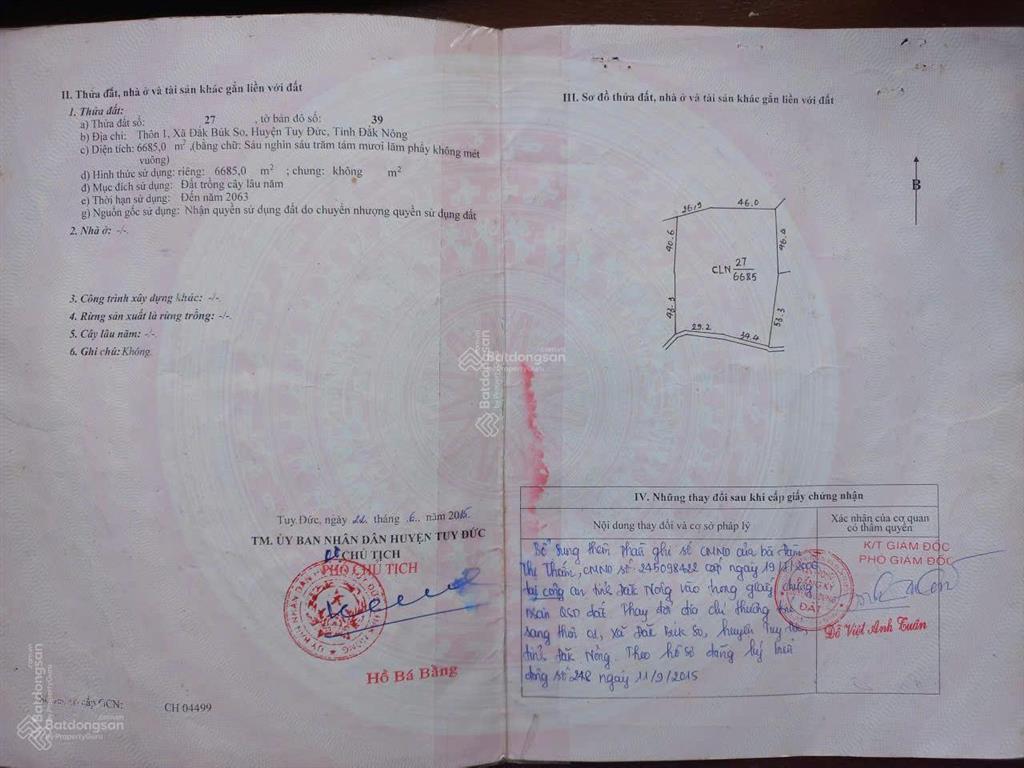 II. Thửa đất, nhà ở và tài sản khác gắn liền với đất
1. Thửa đất:
a) Thửa đất số: 27 , tờ bản đồ số: 39
b) Địa chỉ: Thôn 1, Xã Đắk Búk So, Huyện Tuy Đức, Tỉnh Đắk Nông
c) Diện tích: 6685,0 m² ,(bằng chữ: Sáu nghìn sáu trăm tám mươi lăm phẩy không mét
vuông)
d) Hình thức sử dụng: riêng: 6685,0 m² ; chung: không m²
đ) Mục đích sử dụng: Đất trồng cây lâu năm
e) Thời hạn sử dụng: Đến năm 2063
g) Nguồn gốc sử dụng: Nhận quyền sử dụng đất do chuyển nhượng quyền sử dụng đất
2. Nhà ở: -/-.
3. Công trình xây dựng khác: -/-.
4. Rừng sản xuất là rừng trồng: -/-.
5. Cây lâu năm: -/-.
6. Ghi chú: Không.
Tuy Đức, ngày 22 tháng 6 năm 2015
TM. ỦY BAN NHÂN DÂN HUYỆN TUY ĐỨC
CHỦ TỊCH
PHÓ CHỦ TỊCH
Hồ Bá Bằng
cấp GCN: CH 04499
III. Sơ đồ thửa đất, nhà ở và tài sản khác gắn liền với đất
B
26.9 46.0
40.6 46.0
CLN 27
6685
43.3 53.3
29.2 34.4
IV. Những thay đổi sau khi cấp giấy chứng nhận
Nội dung thay đổi và cơ sở pháp lý
Xác nhận của cơ quan
có thẩm quyền
Bổ sung thêm phần ghi số CMND của bà
Thị Thắm, CMND số: 245098422 cấp ngày
tại công an tỉnh Đắk Nông vào trong giấy chứng
nhận QSD đất. Thay đổi địa chỉ thường trú
sang thôn xã Đắk Búk So, huyện Tuy Đức,
tỉnh Đắk Nông. Theo hồ sơ đăng ký biến
động số 248 ngày 11/9/2015
K/T GIÁM ĐỐC
PHÓ GIÁM ĐỐC
ĐĂNG KÝ
ĐẤT
Đỗ Việt Anh Tuấn
Batdongsan
by PropertyGuru
Batdongsan
by PropertyGuru
Batdongsan
by PropertyGuru